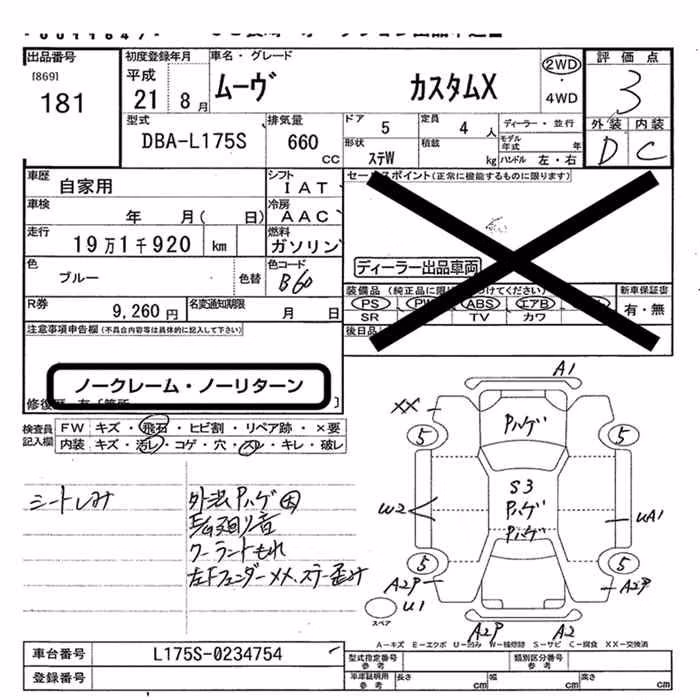 出品番号
[869]
181
初度登録年月
平成
21 8 月
車名・グレード
ムーヴ カスタムX
2WD
・
4WD
評価点
3
外装 内装
D C
型式
DBA-L175S
排気量
660
CC
ドア
5
定員
4 人
ディーラー・並行
形状
ステW
積載
kg
モデル年式 年
ハンドル 左・右
車歴
自家用
シフト
IAT
車検
年 月( 日)
冷房
AAC
走行
19万1千920 km
燃料
ガソリン
色
ブルー
色替
色コード
B60
R券
9,260 円
名変通知期限
月 日
セールスポイント(正常に機能するものに限ります)
ディーラー出品車両
装備品 (純正品に限り けてください)
PS PW ABS エアB
SR TV カワ
新車保証書
有・無
後日品
注意事項申告欄 (不具合内容等は具体的に記入して下さい)
ノークレーム・ノーリターン
検査員
記入欄
FW キズ・飛石・ヒビ割・リペア跡・×要
内装 キズ・汚レ・コゲ・穴・スレ・キレ・破レ
シートしみ
外装Pハゲ凹
クーラントもれ
左Fフェンダーメメ、ステー歪み
A1
XX
Pハゲ
5 5
S3
Pハゲ
Pハゲ
W2
UA1
5 5
A2P A2P
U1
スペア
A2P A2
A－キズ E－エクボ U－凹み W－補修跡 S－サビ C－腐食 XX－交換済
車台番号
L175S-0234754
登録番号
型式指定番号
参考
類別区分番号
参考
車庫証明用
参考
長さ cm
幅 cm
高さ cm